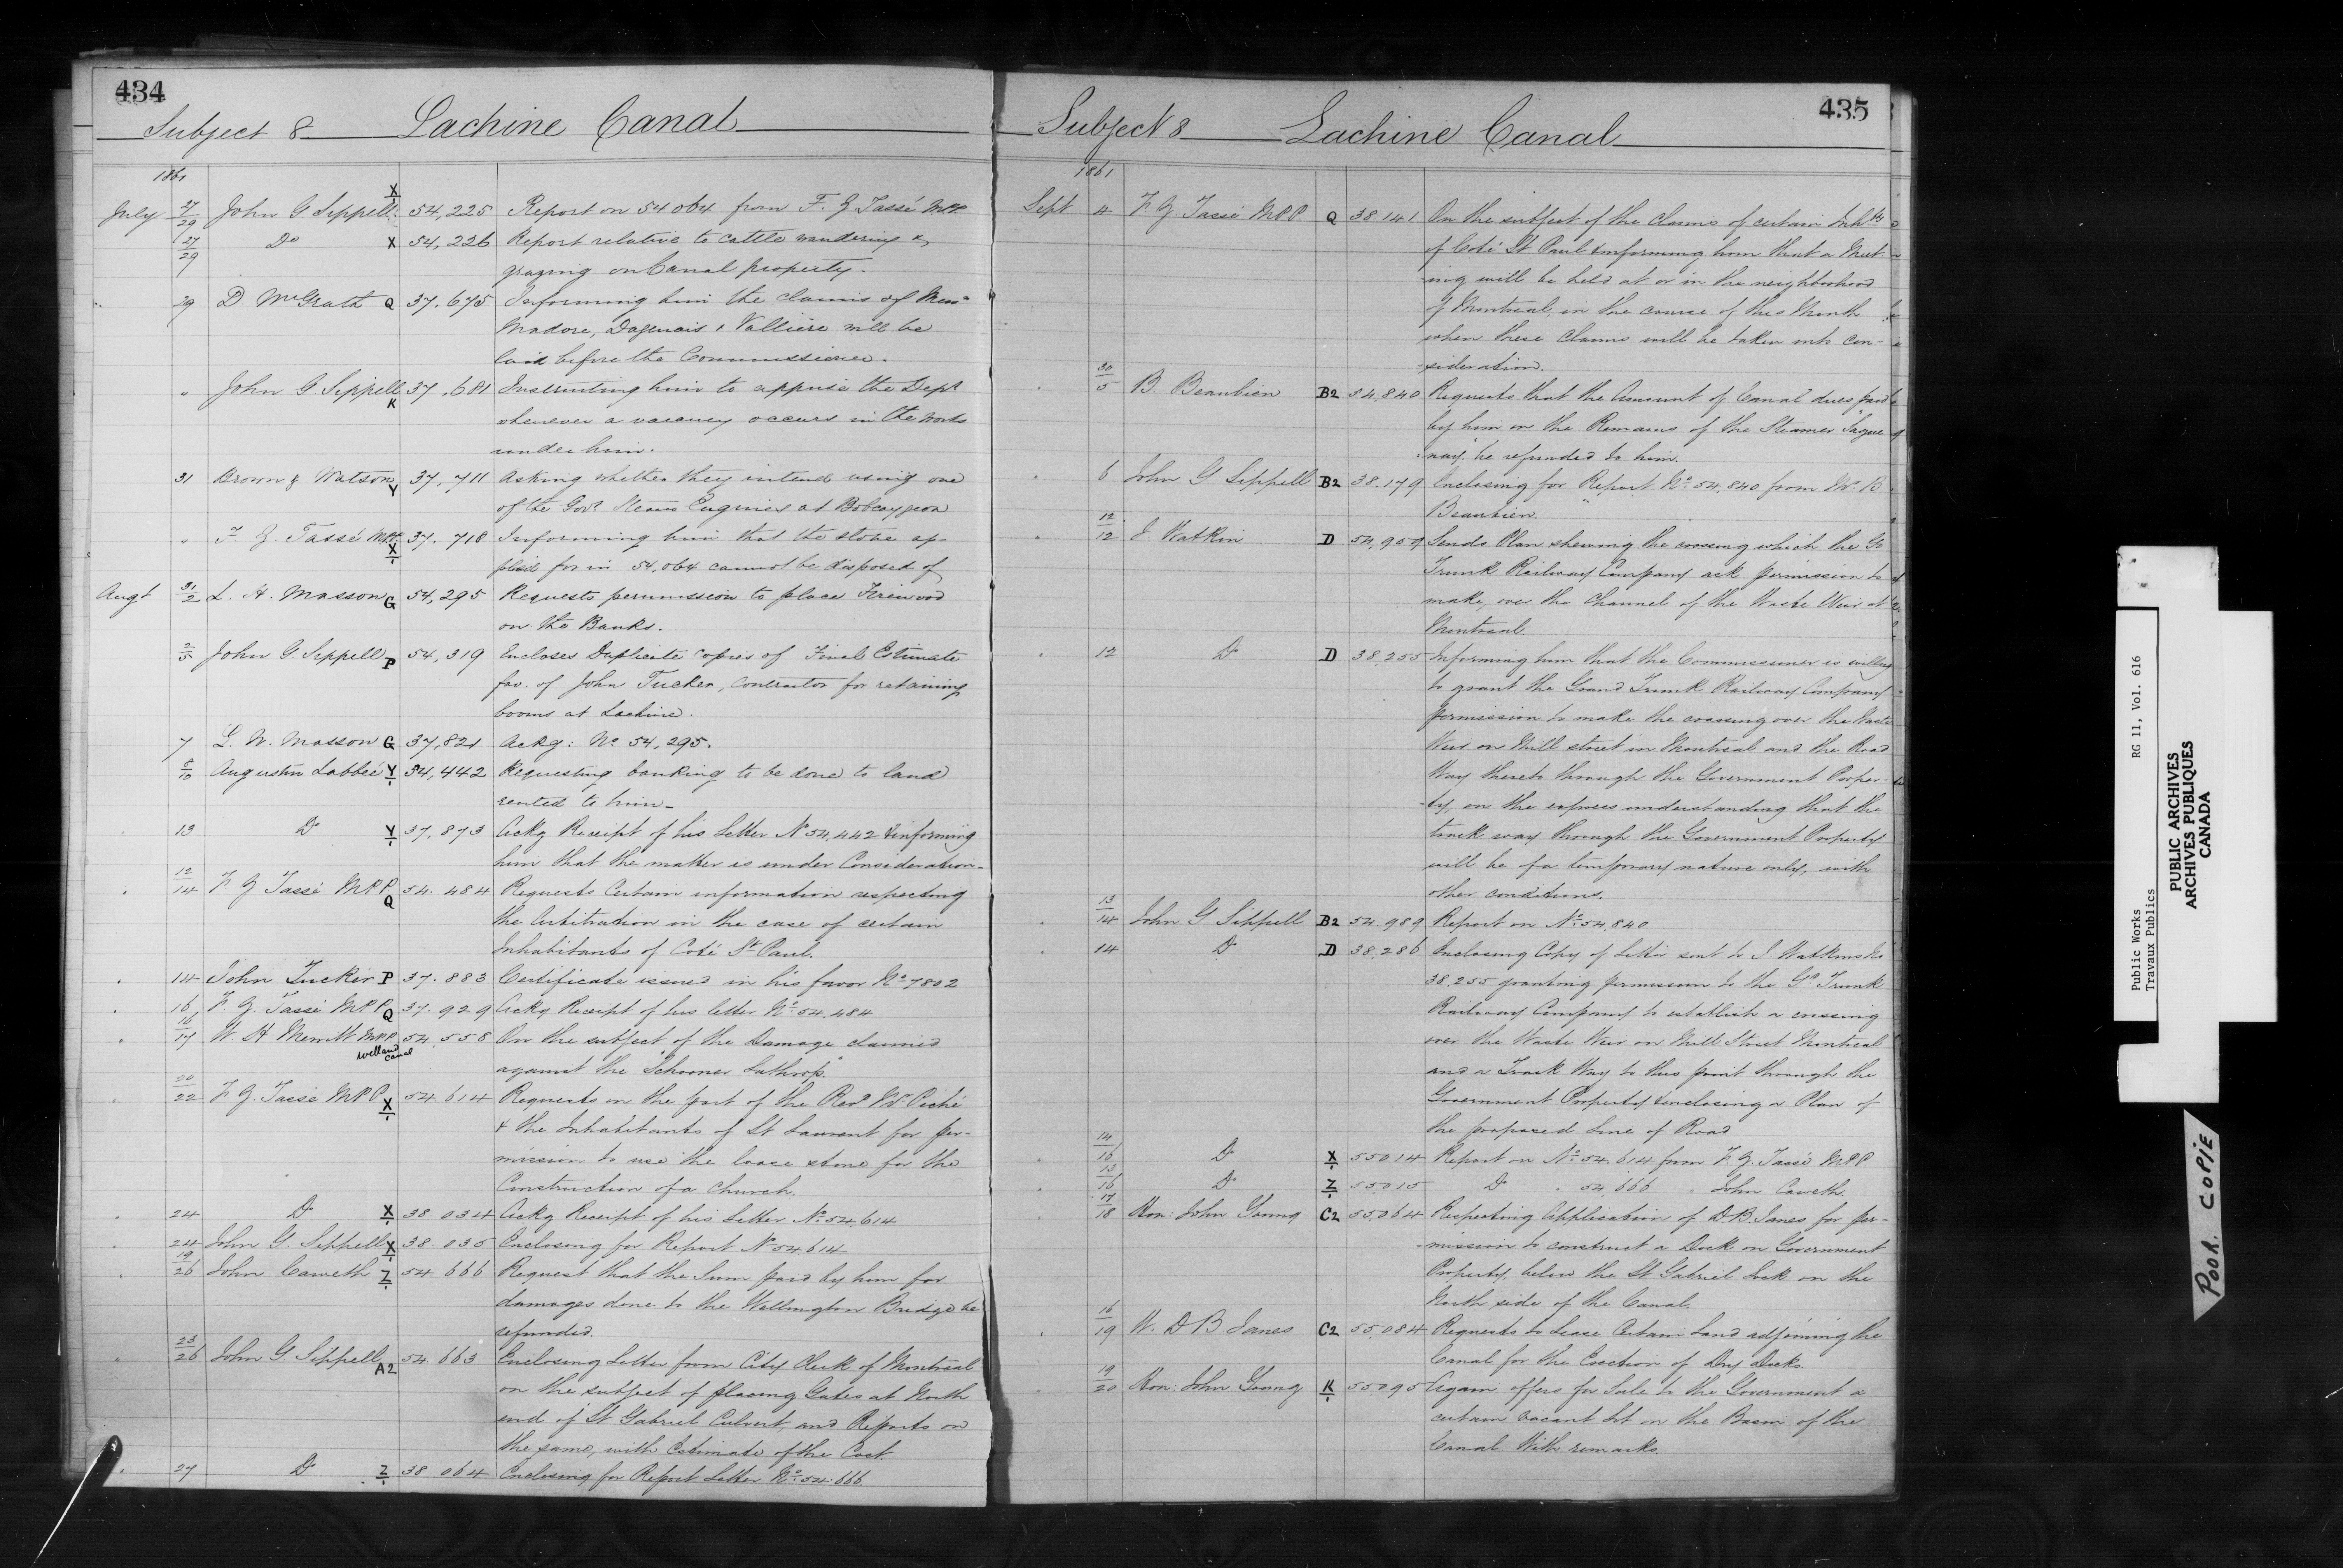 434
Subject 8 Lachine Canal
1861
July 27/29 John G Sippell X 54,225 Report on 54064 from F. Z Tassé M.P.P.
27/29 Do X 54,226 Report relative to cattle wandering &
grazing on Canal property.
29 D. McGrath Q 37,675 Informing him the claims of Mess
Madore, Dagenais & Vallière will be
laid before the Commissioner.
" John G Sippell K 37,681 Instructing him to apprise the Dept
whenever a vacancy occurs in the works
under him.
31 Brown & Watson Y 37,711 Asking whether they intend using one
of the Govt Steam Engines at Bobcaygeon
" F. Z. Tassé M.P.P. X 37.718 Informing him that the stone ap-
plied for in 54,064 cannot be disposed of
Augt 31/2 L. H. Masson G 54,295 Requests permission to place Firewood
on the Banks.
2/5 John G. Sippell P 54,319 Encloses Duplicate copies of Final Estimate
fav. of John Tucker, Contractor for retaining
booms at Lachine.
7 L. H. Masson G 37,821 Ackg: No 54,295.
8/10 Augustin Labbeé Y 54,442 Requesting banking to be done to land
rented to him_
13 Do Y 37,873 Ackg Receipt of his Letter No 54,442 & informing
him that the matter is under Consideration-
12/14 F. Z Tassé M.P.P. Q 54.484 Requests Certain information respecting
the Arbitration in the case of certain
Inhabitants of Coté St Paul.
14 John Tucker P 37.883 Certificate issued in his favor No 7802
16 F. Z. Tassé M.P.P. Q 37.929 Ackg Receipt of his letter No 54.484
16/17 W. H Merritt M.P.P. Welland Canal 54,558 On the subject of the Damage claimed
against the "Schooner Lathrop."
20/22 F. Z. Tassé M.P.P. X 54 614 Requests on the part of the Revd Mr Piché
& the Inhabitants of St Laurent for per-
mission to use the loose stone for the
Construction of a Church.
24 Do X 38.034 Ackg Receipt of his Letter No 54614
24 John G. Sippell X 38.035 Enclosing for Report No 54614
19/26 John Caweth Z 54 666 Request that the Sum paid by him for
damages done to the Wellington Bridge be
refunded.
23/26 John G Sippell A2 54 663 Enclosing Letter from City Clerk of Montreal
on the subject of placing Gates at North
end of St Gabriel Culvert, and Reports on
the same, with Estimate of the Cost.
27 Do Z 38.064 Enclosing for Report Letter No 54.666
435
Subject 8 Lachine Canal
1861
Sept 4 F. Z. Tassé M.P.P. Q 38.141 On the subject of the Claims of certain Inhbts
of Coté St Paul & informing him that a Meet-
-ing will be held at or in the neighborhood
of Montreal, in the course of this Month
when these claims will be taken into con-
-sideration.
30/5 B. Beaubien B2 54,840 Requests that the Amount of Canal dues paid
by him on the Remains of the Steamer "Sague
nay" be refunded to him.
6 John G Sippell B2 38.179 Enclosing for Report No 54,840 from Mr B
Beaubien.
12/12 J. Watkin D 54,959 Sends Plan shewing the crossing which the Gd
Trunk Railway Company ask permission to
make, over the Channel of the Waste Weir at
Montreal
12 Do D 38,255 Informing him that the Commissioner is willing
to grant the Grand Trunk Railway Company
permission to make the crossing over the Waste
Weir on Mill street in Montreal and the Road
Way thereto through the Government Proper-
-ty, on the express understanding that the
track way through the Government Property
will be of a temporary nature only, with
other conditions.
13/14 John G Sippell B2 54.989 Report on No 54,840
14 Do D 38,286 Enclosing Copy of Letter sent to J. Watkins No
38.255 granting permission to the Gd Trunk
Railway Company to establish a crossing
over the Waste Weir on Mill Street Montreal
and a Track Way to this point through the
Government Property & enclosing a Plan of
the proposed Line of Road
14/16 Do X 55014 Report on No 54.614 from F. Z. Tassé M.P.P.
13/16 Do Z 55015 Do " 54,666 " John Caweth.
17/18 Hon: John Young C2 55064 Respecting Application of D. B. Janes for per-
-mission to construct a Dock on Government
Property, below the St Gabriel Lock on the
North side of the Canal.
16/19 W. D B Janes C2 55,084 Requests to Lease Certain Land adjoining the
Canal for the Erection of Dry Docks.
19/20 Hon: John Young K 55095 Again offers for Sale to the Government a
certain vacant Lot on the Basin of the
Canal With remarks.
Public Works RG 11, Vol. 616
Travaux Publics
PUBLIC ARCHIVES
ARCHIVES PUBLIQUES
CANADA
POOR COPIE